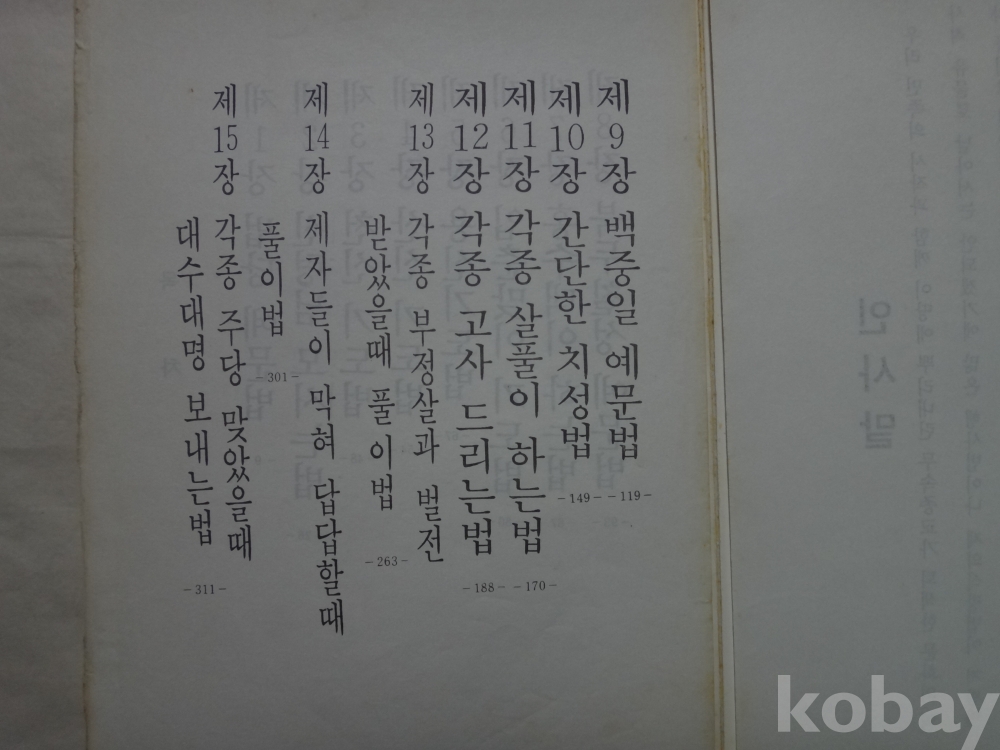 제9장 백중일 예문법
-119-
제10장 간단한 치성법
-149-
제11장 각종 살풀이 하는법
-170-
제12장 각종 고사 드리는법
-188-
제13장 각종 부정살과 벌전
받았을때 풀이법
-263-
제14장 제자들이 막혀 답답할때
풀이법
-301-
제15장 각종 주당 맞았을때
대수대명 보내는법
-311-
인사말
kobay